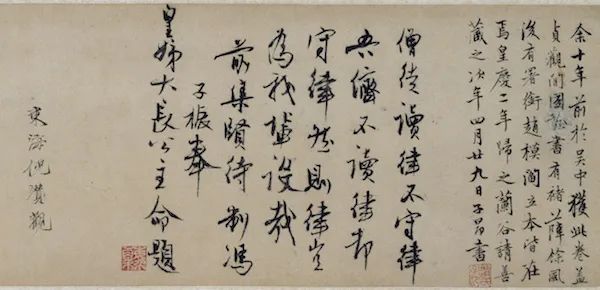 余十年前於吴中獲此卷蓋
貞觀間國詮書有褚薛餘風
後有署銜趙模閻立本皆在
焉皇慶二年歸之蘭谷請善
藏之次年四月廿九日子昂書
僧徒讀律不守律
吾儕不讀律却
守律然則律豈
為我輩設哉
前集賢待制馮
子振奉
皇姊大長公主命題
東海倪瓚觀